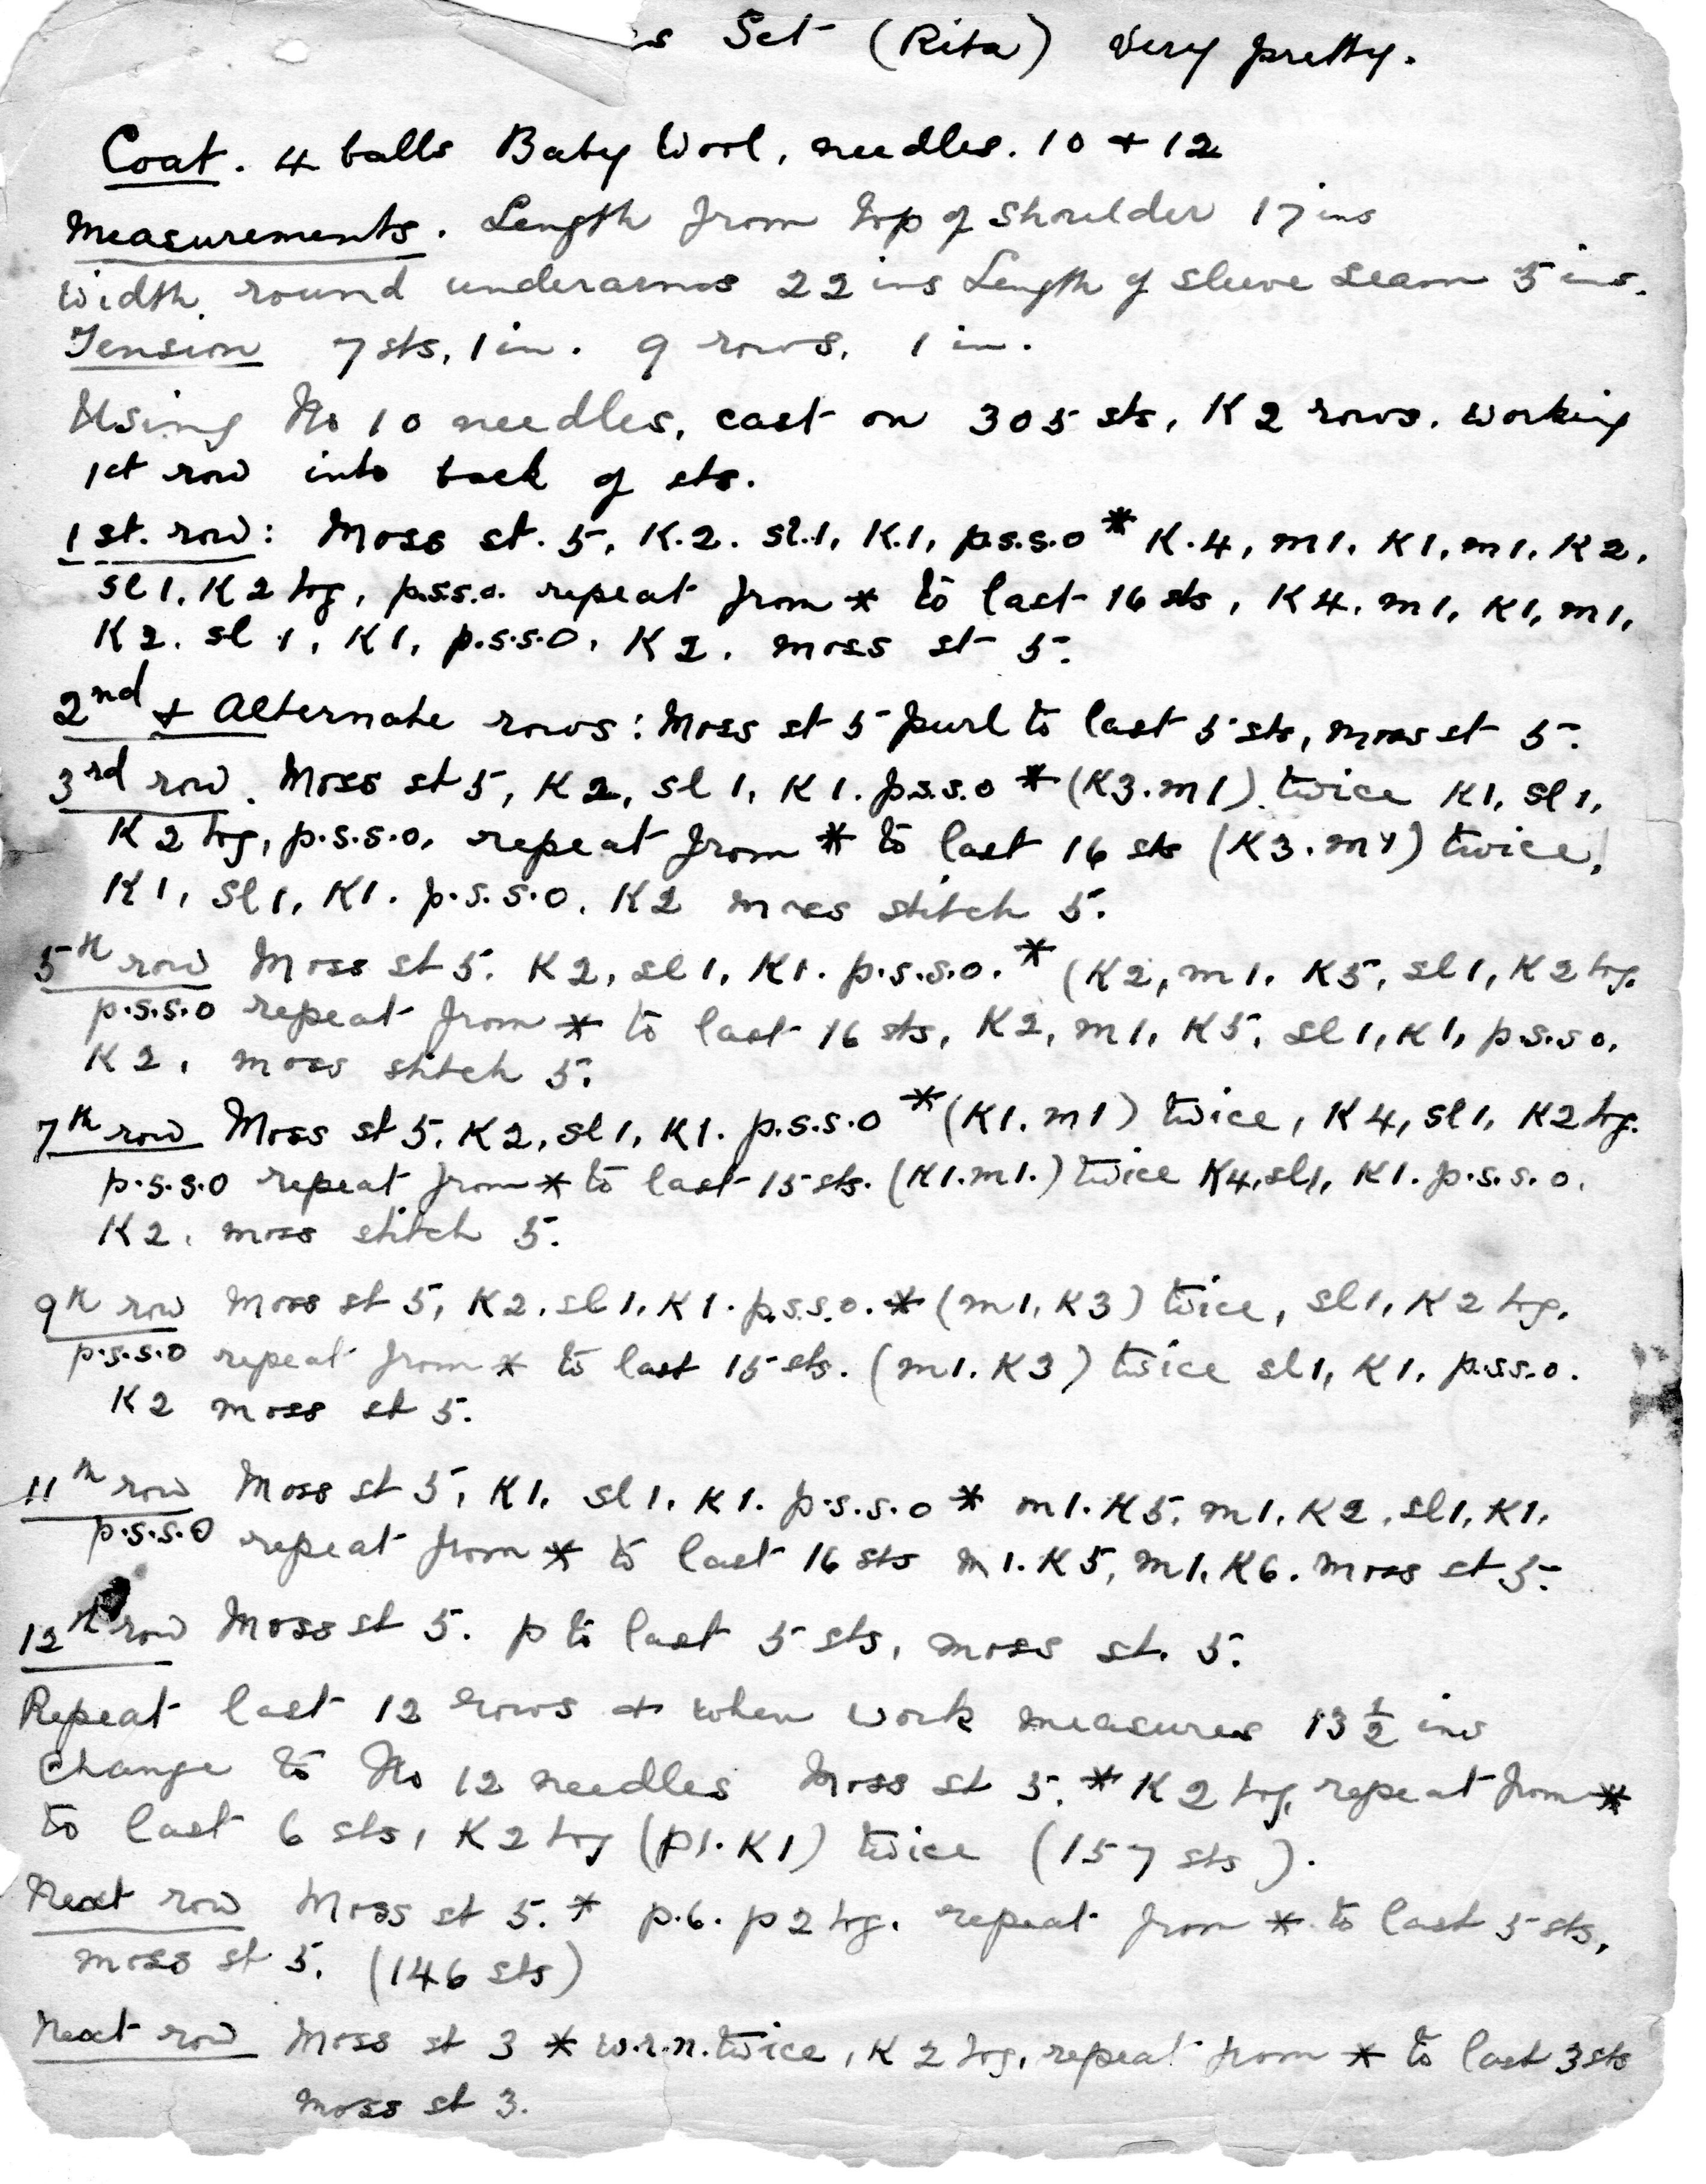 s Set (Rita) Very pretty.
Coat. 4 balls Baby Wool, needles. 10 + 12
Measurements. Length from top of shoulder 17 ins
Width round underarms 22 ins Length of sleeve seam 5 ins.
Tension 7 sts, 1 in. 9 rows, 1 in.
Using No 10 needles, cast on 305 sts, K 2 rows. working
1st row into back of sts.
1st. row: Moss st. 5, K.2. sl.1, K.1, p.s.s.o * K.4, m1. K1, m1, K2,
sl 1, K2 tog, p.s.s.o. repeat from * to last 16 sts, K4. m1, K1, m1,
K2. sl 1, K1, p.s.s.o, K2, moss st 5.
2nd + Alternate rows: Moss st 5 purl to last 5 sts, moss st 5.
3rd row. Moss st 5, K2, sl 1, K1. p.s.s.o * (K3. m1). twice K1, sl 1,
K2 tog, p.s.s.o, repeat from * to last 16 sts (K3. m1) twice,
K1, sl 1, K1. p.s.s.o, K2 moss stitch 5.
5th row Moss st 5. K2, sl 1, K1. p.s.s.o. * (K2, m1. K5, sl 1, K2 tog.
p.s.s.o repeat from * to last 16 sts, K2, m1, K5, sl 1, K1, p.s.s o,
K2, moss stitch 5.
7th row Moss st 5. K2, sl 1, K1. p.s.s.o * (K1. m1) twice, K4, sl 1, K2 tog.
p.s.s.o repeat from * to last 15 sts. (K1. m1.) twice K4, sl 1, K1. p.s.s.o.
K2. moss stitch 5.
9th row Moss st 5, K2, sl 1, K1. p.s.s.o. * (m1, K3) twice, sl 1, K2 tog.
p.s.s.o repeat from * to last 15 sts. (m1. K3) twice sl 1, K1, p.s.s.o.
K2 moss st 5.
11th row Moss st 5, K1, sl 1, K1. p.s.s.o * m1. K5, m1, K2, sl 1, K1,
p.s.s.o repeat from * to last 16 sts m1. K5, m1, K6. moss st 5.
12th row Moss st 5. p to last 5 sts, moss st. 5.
Repeat last 12 rows + when work measures 13 1/2 ins
Change to No 12 needles Moss st 5. * K2 tog, repeat from *
to last 6 sts, K2 tog (p1. K1) twice (157 sts).
Next row Moss st 5. * p.6. p2 tog. repeat from * to last 5 sts,
moss st 5. (146 sts)
Next row Moss st 3 * w.r.n. twice, K2 tog, repeat from * to last 3 sts
moss st 3.